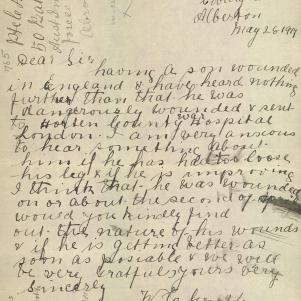 Alberton
May 26 1917
Dear Sir
having a son wounded
in England & have heard nothing
further than that he was
dangerously wounded & sent
to Horten County war Hospital
London. I am very anscous
to hear something about
him if he has had to loose
his leg & if he is improving
I think that he was wounded
on or about the second of
would you kindly find
out the nature of his wounds
& if he is getting better as
soon as poseable & we will
be very gratful yours very
Sincerly